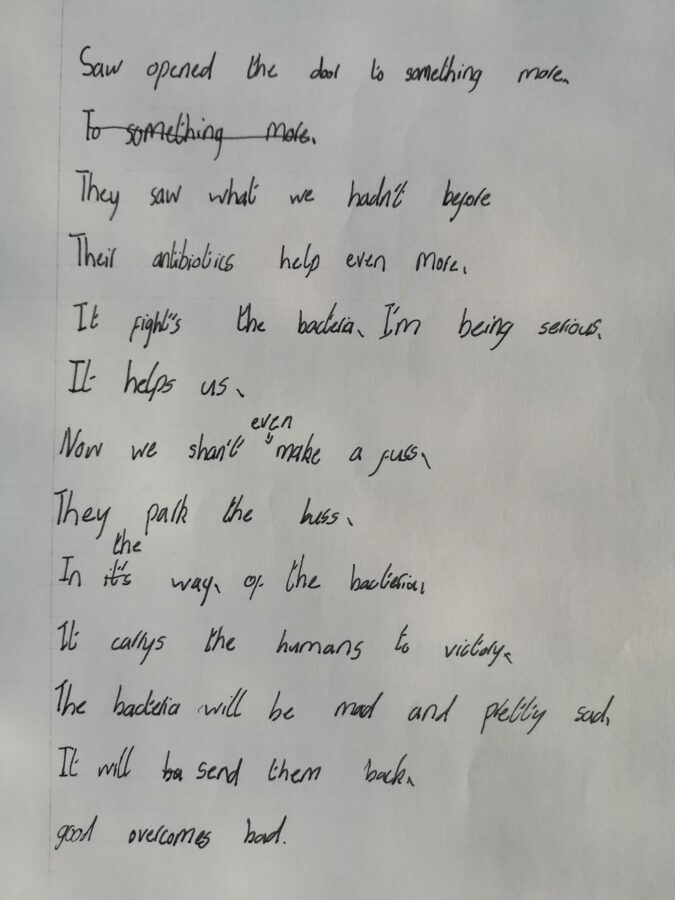 Saw opened the door to something more.
To something more.
They saw what we hadn't before
Their antibiotics help even more.
It fight's the bacteria, I'm being serious.
It helps us.
Now we shan't even make a fuss.
They park the buss.
In it's the way, of the bacteria.
It carrys the humans to victory.
The bacteria will be mad and pretty sad,
It will ba send them back.
good overcomes bad.